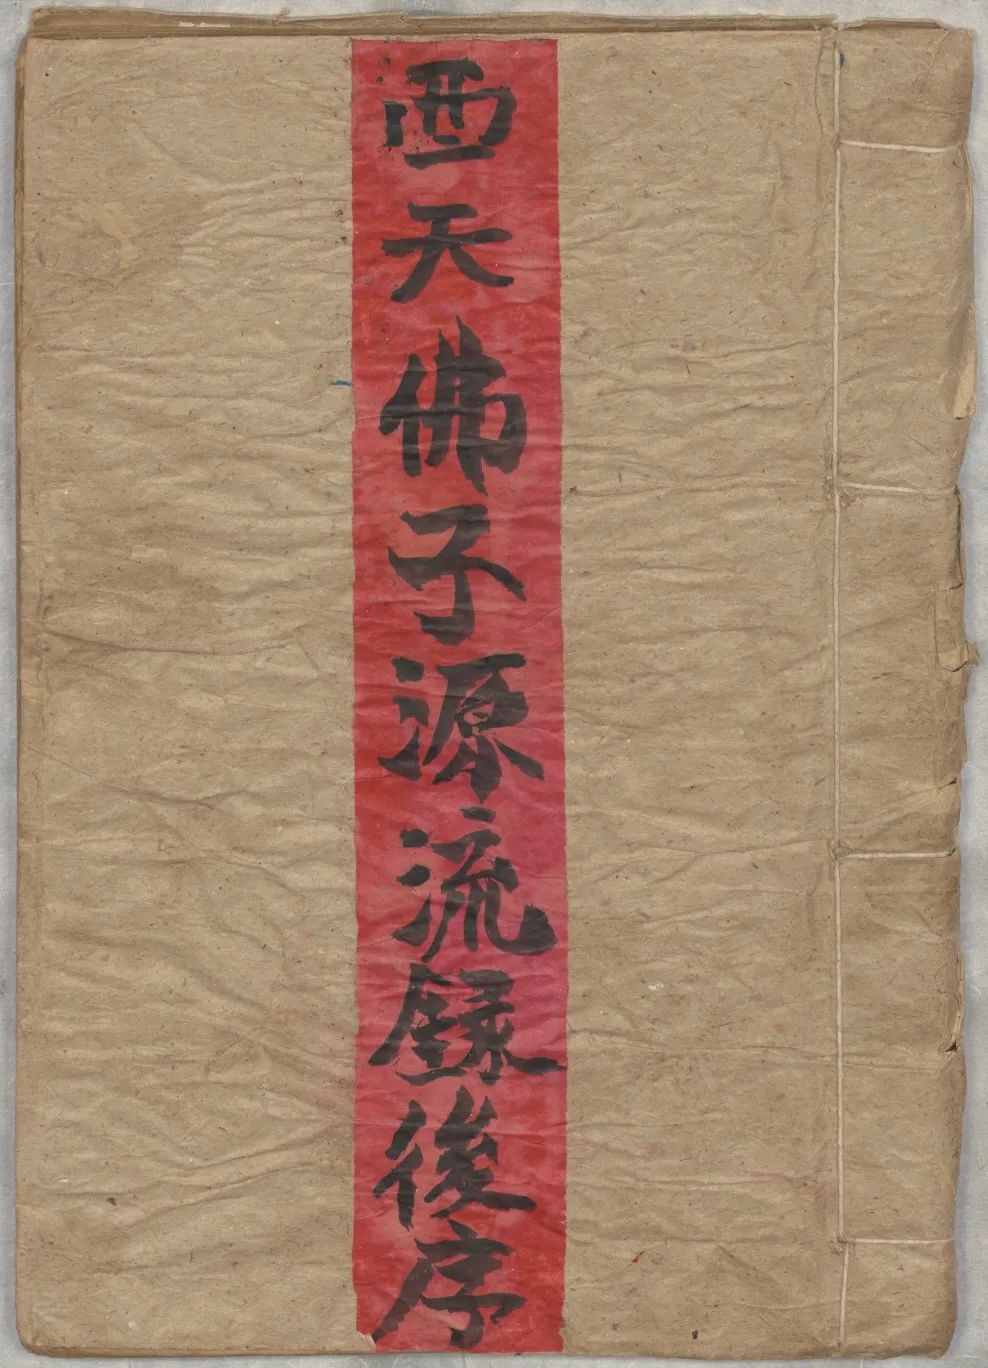 西天佛子源流錄後序